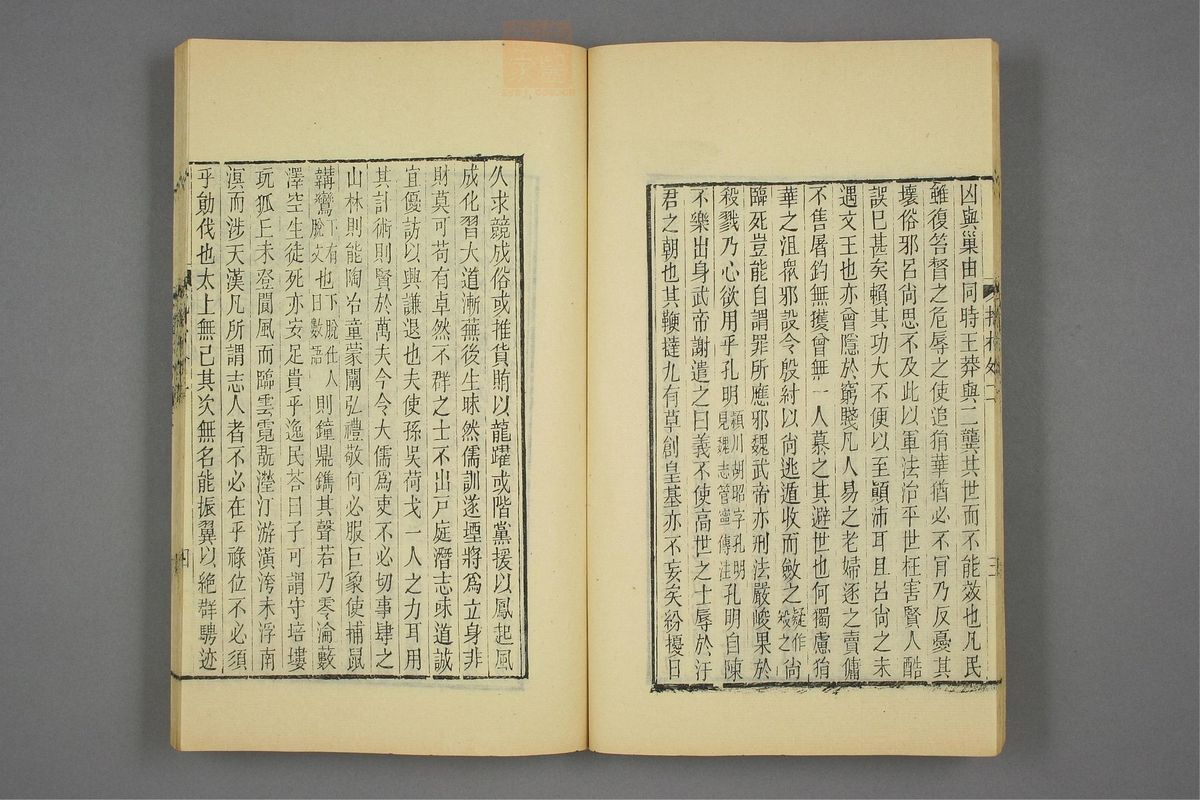 凶與巢由同時王莽與二龔其世而不能效也凡民
雖復笞督之危辱之使追狷華猶必不肎乃反憂其
壞俗邪呂尚思不及此以軍法治平世枉害賢人酷
誤已甚矣賴其功大不便以至顚沛耳且呂尚之未
遇文王也亦曾隱於窮賤凡人易之老婦逐之賣傭
不售屠釣無獲曾無一人慕之其避世也何獨慮狷
華之沮衆邪設令殷紂以尚逃遁收而斂之疑作殺之尚
臨死豈能自謂罪所應邪魏武帝亦刑法嚴峻果於
殺戮乃心欲用乎孔明潁川胡昭字孔明見魏志管寧傳注孔明自陳
不樂出身武帝謝遣之曰義不使高世之士辱於汙
君之朝也其鞭撻九有草創皇基亦不妄矣紛擾日
久求競成俗或推貨賄以龍躍或階黨援以鳳起風
成化習大道漸蕪後生昧然儒訓遂堙將爲立身非
財莫可苟有卓然不群之士不出戸庭潛志味道誠
宜優訪以興謙退也夫使孫吳荷戈一人之力耳用
其計術則賢於萬夫今令大儒爲吏不必切事肆之
山林則能陶冶童蒙闡弘禮敬何必服巨象使捕鼠
韝鸞下有脫文也下脫仕人也曰數語人則鐘鼎鐫其聲若乃零淪藪
澤空生徒死亦妄足貴乎逸民荅曰子可謂守培塿
玩狐丘未登閬風而臨雲霓翫瀅汀游潢洿未浮南
溟而涉天漢凡所謂志人者不必在乎祿位不必須
乎勛伐也太上無己其次無名能振翼以絶群騁迹
三
四